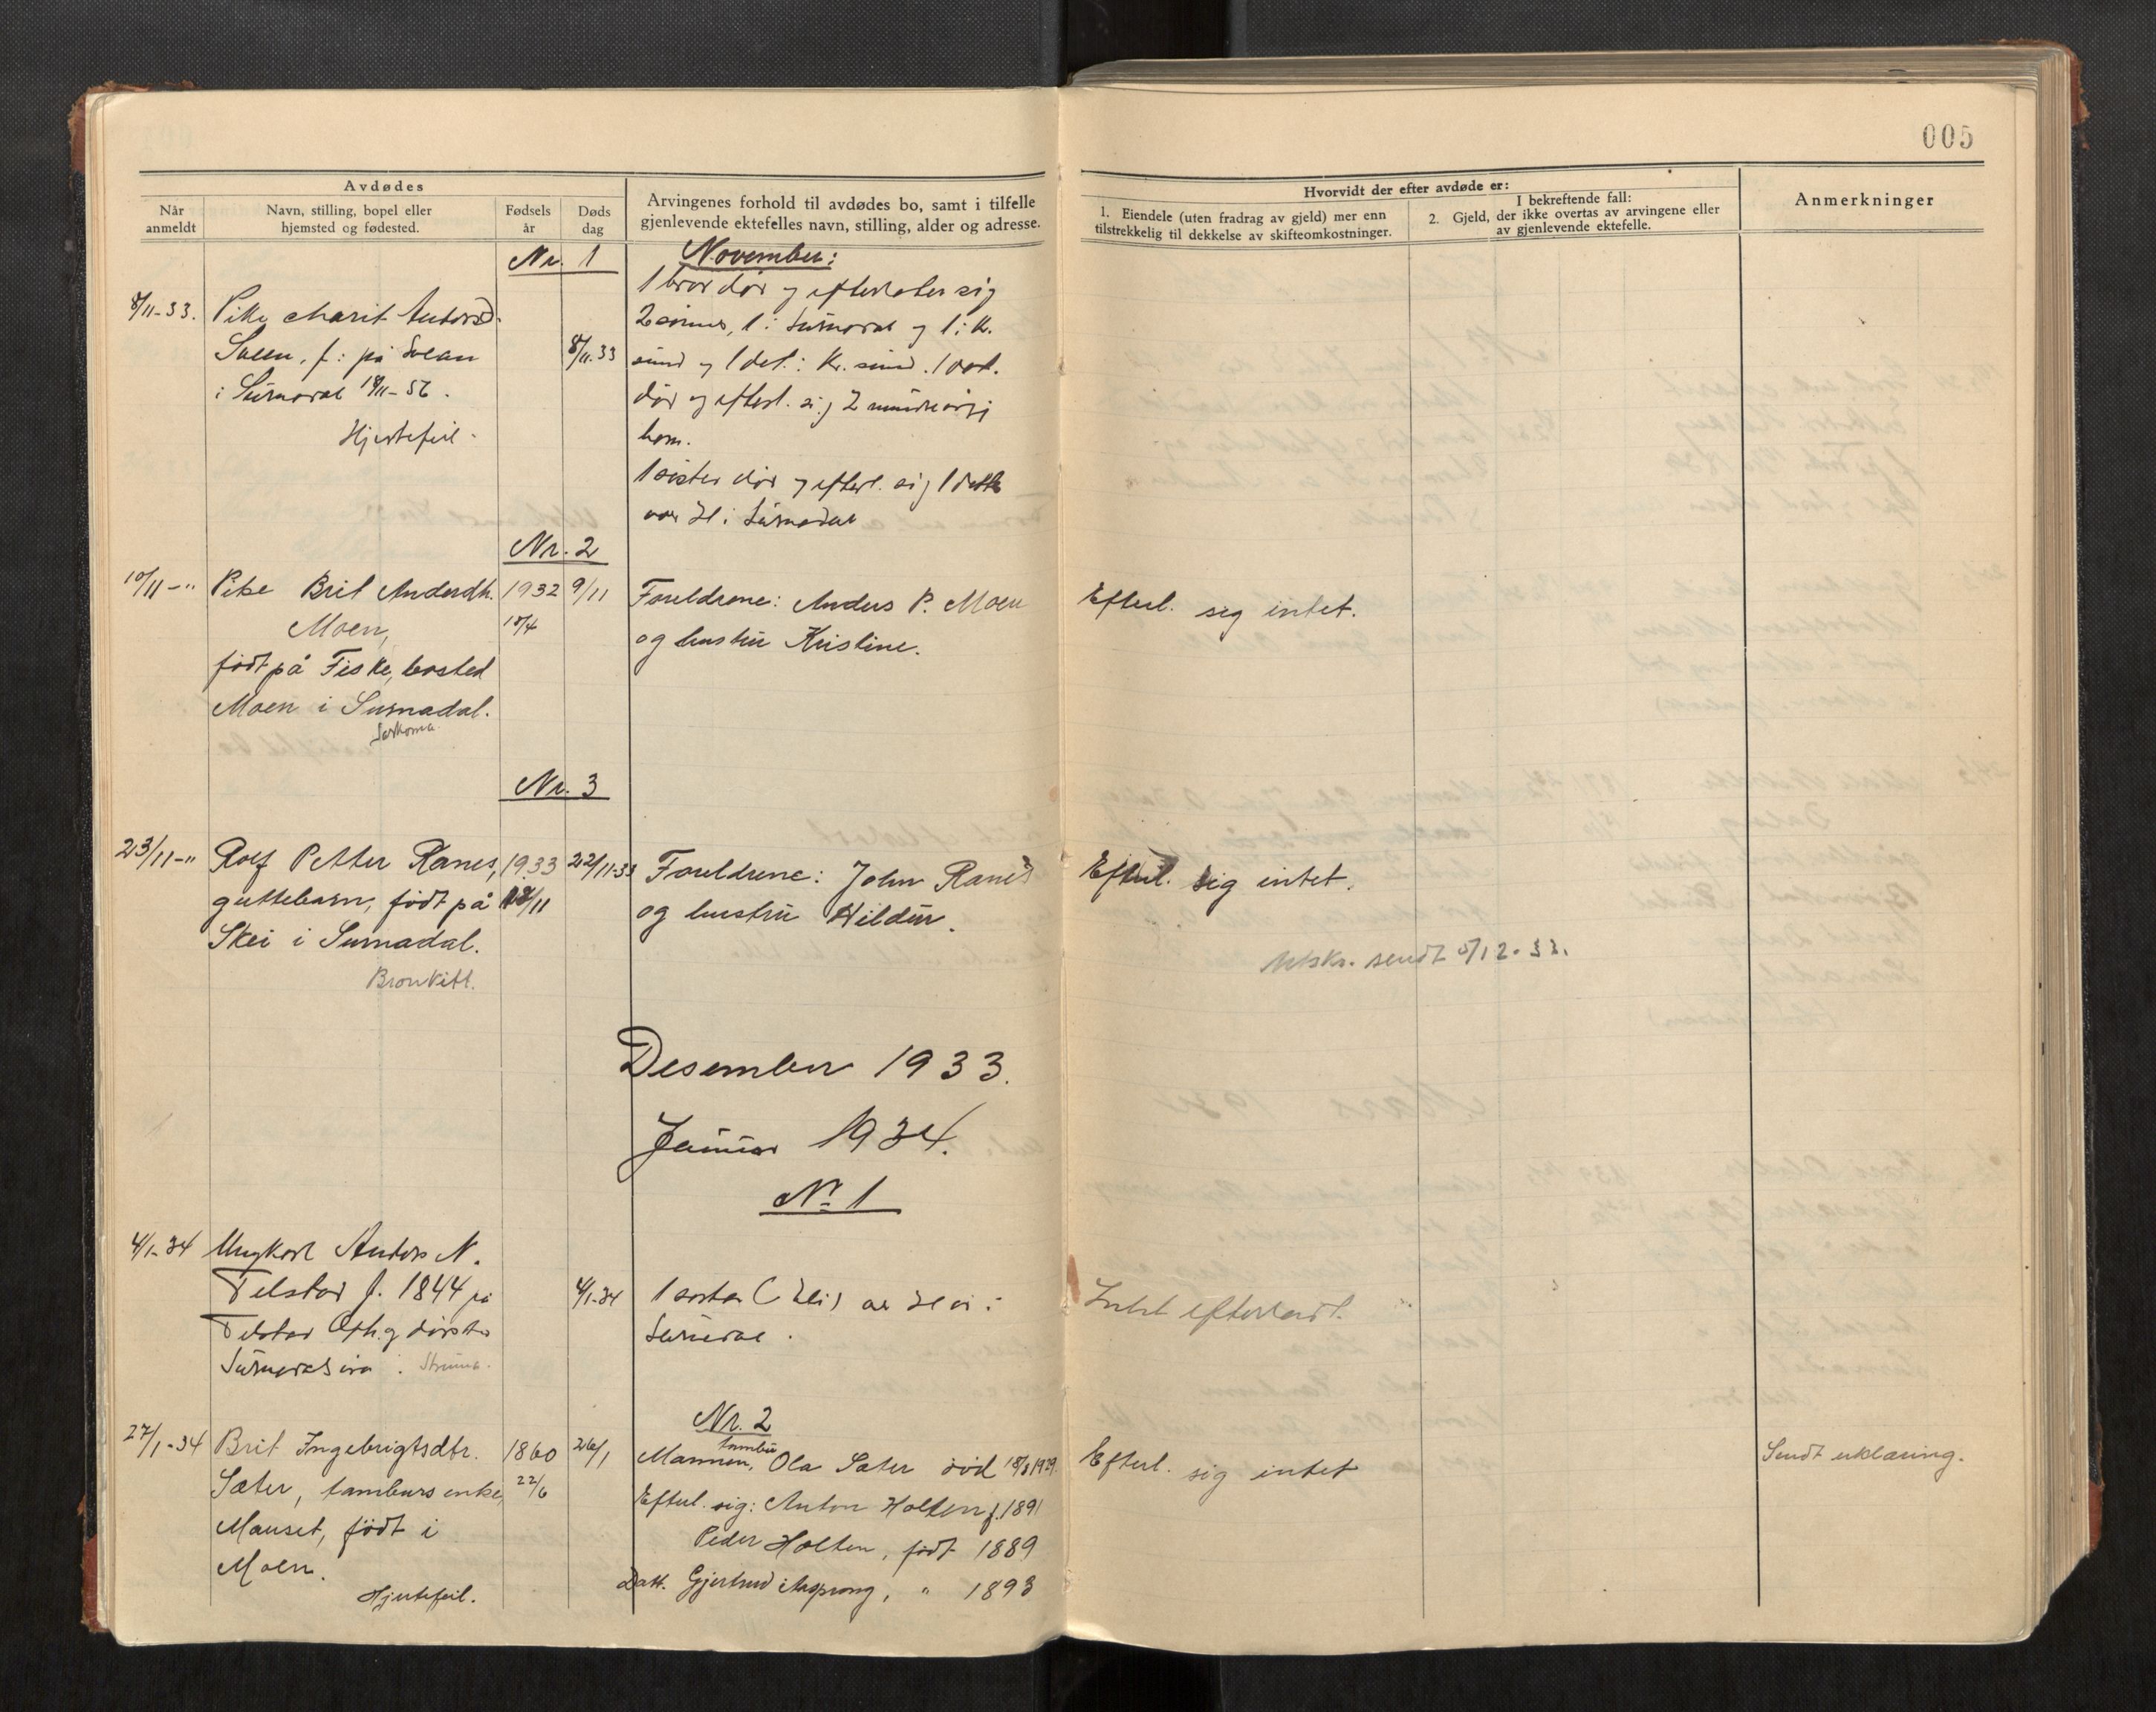 005
Avdødes
Når anmeldt
Navn, stilling, bopel eller hjemsted og fødested.
Fødsels år
Døds dag
Arvingenes forhold til avdødes bo, samt i tilfelle gjenlevende ektefelles navn, stilling, alder og adresse.
Hvorvidt der efter avdøde er:
1. Eiendele (uten fradrag av gjeld) mer enn tilstrekkelig til dekkelse av skifteomkostninger.
I bekreftende fall:
2. Gjeld, der ikke overtas av arvingene eller av gjenlevende ektefelle.
Anmerkninger
Nr. 1
November:
8/11-33. Pike Marit Andersd.
i Surnadal
Hjertefeil.
8/11.33
1 bror død og efterlater sig
2 sønner, 1 i Surnadal og 1 i Kr.
sund og 1 dat. i Kr. sund. 1
død og efterl. sig 2 mindreårige
barn.
1 søster død og efterl. sig 1 datter
i Surnadal
Nr. 2
10/11-" Pike Brit Andersdtr. 1932 9/11
Moen,
født på Fiske, bosted
Moen i Surnadal.
Sarkoma
Foreldrene: Anders P. Moen
og hustru Kristine.
Efterl. sig intet.
Nr. 3
23/11-" Rolf Petter Ranes, 1933 22/11-33
guttebarn, født på
Skei i Surnadal.
Bronkitt.
Foreldrene: John Ranes
og hustru Hildur.
Efterl. sig intet.
Utskr. sendt 5/12-33.
Desember 1933.
Januar 1934.
Nr 1
4/1-34 Ungkarl Anders N.
Telstad f. 1844 på
Telstad
Struma.
4/1-34
1 søster
Surnadal.
Intet efterladt.
Nr. 2
27/1-34 Brit Ingebrigtsdtr. 1860 26/1
Sæter, tambursenke, 22/6
Mauset, født i
Moen.
Hjertefeil.
tambur
Mannen, Ola Sæter død
Efterl. sig: Anton Holten f. 1891
Peder Holten, født 1889
Datt. Gjertrud Aasprong, " 1893
Efterl. sig intet
Sendt erklæring.